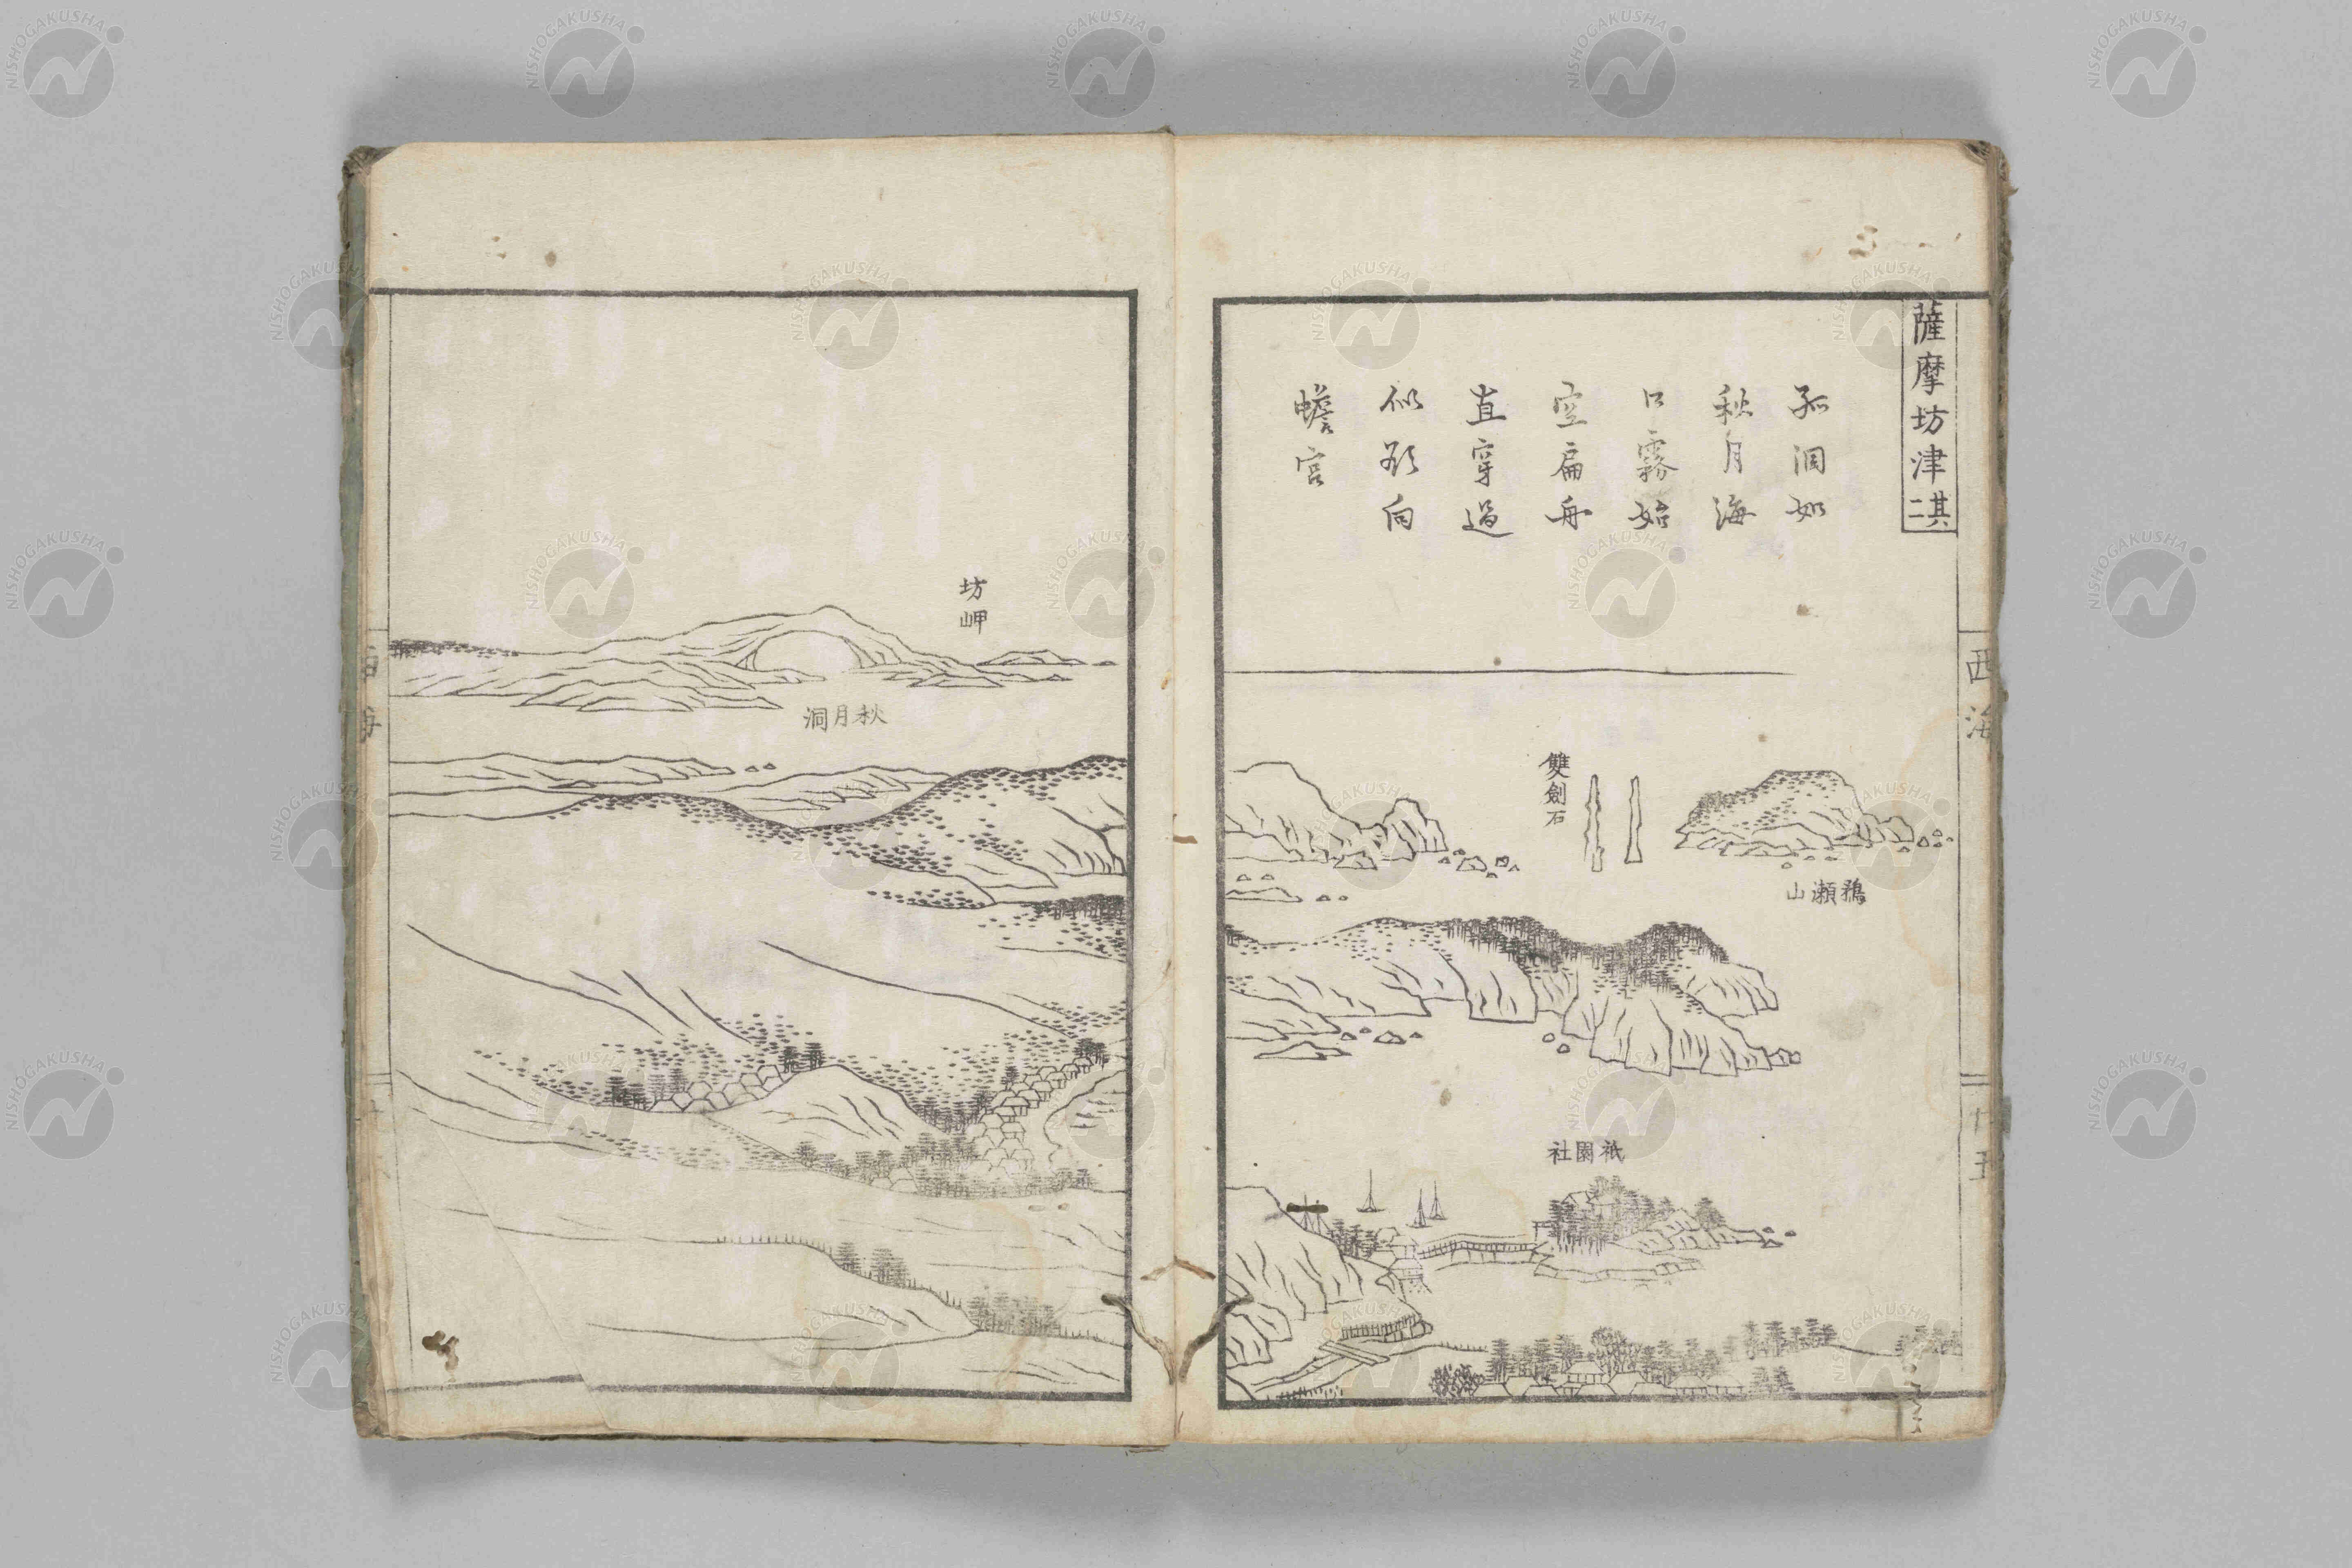 薩摩坊津 其二
孤洞如
秋月海
口霧始
空扁舟
直穿過
似欲向
蟾宮
西海
雙劍石
鵜瀬山
祇園社
坊岬
秋月洞
NISHOGAKUSHA